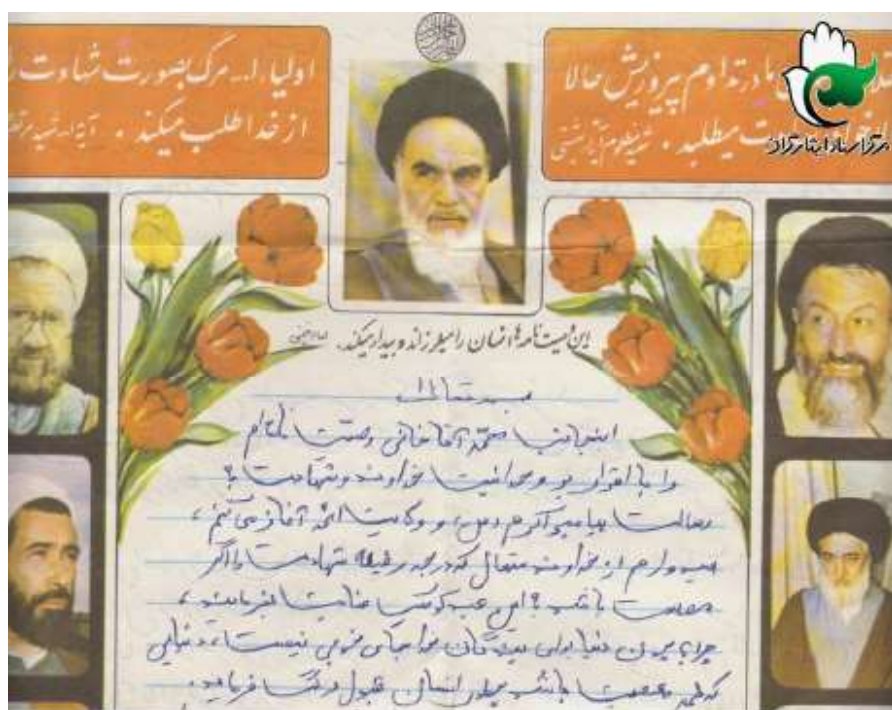 اولیاء ا... مرگ بصورت شهادت را
از خدا طلب میکند . آیة ا... شهید مرتضی
ما در تداوم پیروزیش حالا
میطلبد . شهید مظلوم آیة ا... بهشتی
مرکز اسناد ایثارگران
این وصیت نامه ها انسان را میلرزاند و بیدار میکند. امام خمینی
بسمه تعالی
اینجانب محمد آقاخانی وصیت نامه ام
را با اقرار بر وحدانیت خداوند و شهادت به
رسالت پیامبر اکرم (ص) و ولایت ائمه آغاز می کنم ،
امیدوارم از خداوند متعال که درجه رفیعه شهادت را اگر
مصلحت باشد به این عبد کوچک عنایت بفرمایند ،
چرا چون دنیا برای بندگان خدا جای خوبی نیست ، دنیایی
که همه معصیت باشد برای انسان قبول فرماید .